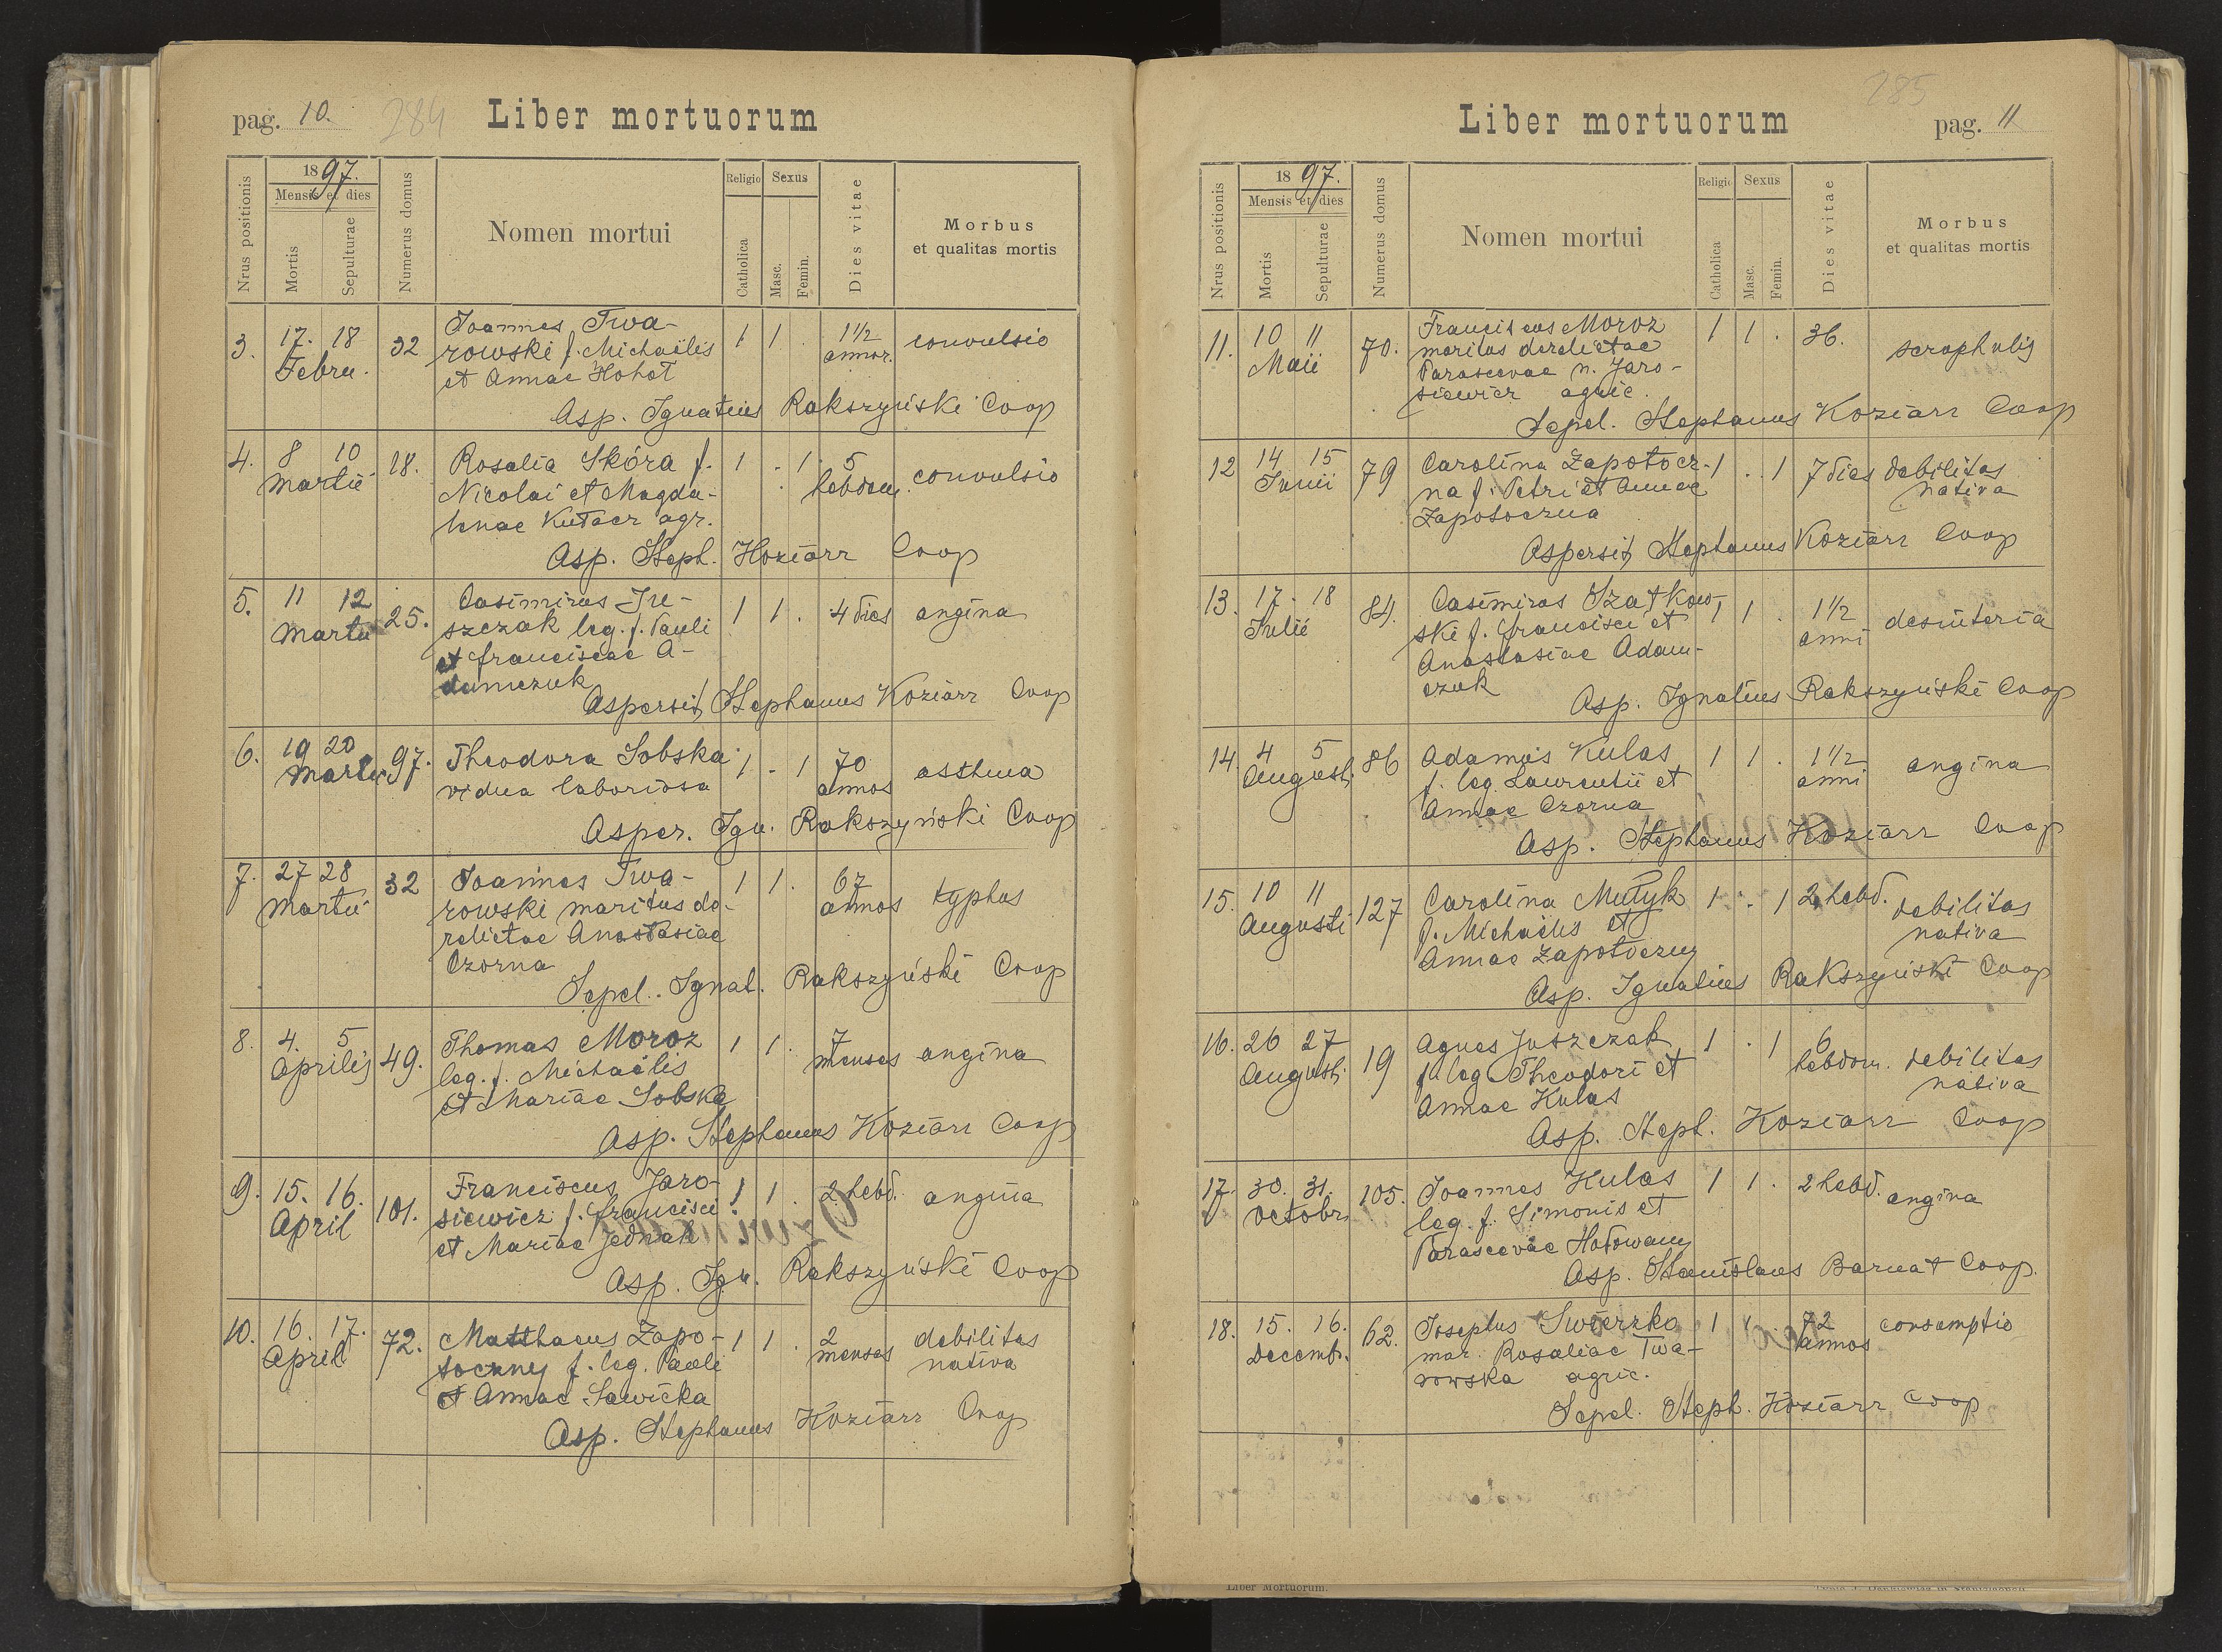 pag. 10. 284 Liber mortuorum
Nrus positionis
1897.
Mensis et dies
Mortis
Sepulturae
Numerus domus
Nomen mortui
Religio
Catholica
Sexus
Masc.
Femin.
Dies vitae
Morbus
et qualitas mortis
3. 17. 18 Febru. 32 Joannes Twa-
rowski f. Michaëlis
et Annae Hohot
1 1 . 1½ annor. convulsio
Asp. Ignatius Rakszyński Coop
4. 8 10 Martii 18. Rosalia Skóra f.
Nicolai et Magda-
lenae Kutacz agr.
1 . 1 5 hebdom. convulsio
Asp. Steph. Koziarz Coop
5. 11 12 Martii 25. Casimirus Ju-
szczak leg. f. Pauli
et Franciscae A-
damczuk
1 1 . 4 dies angina
Aspersit Stephanus Koziarz Coop
6. 19 20 Martii 97. Theodora Sobska
vidua laboriosa
1 - 1 70 annos asthma
Asper. Ign. Rakszyński Coop
7. 27 28 Martii 32 Joannes Twa-
rowski maritus de-
relictae Anastasiae
Czorna
1 1 . 67 annos typhus
Sepel. Ignat. Rakszyński Coop
8. 4. 5 Aprilis 49. Thomas Moroz
leg. f. Michaëlis
et Mariae Sobska
1 1 . 7 menses angina
Asp. Stephanus Koziarz Coop
9. 15. 16. April 101. Franciscus Jaro-
siewicz f. Francisci
et Mariae Jednak
1 1 . 2 hebd. angina
Asp. Ign. Rakszyński Coop
10. 16. 17. April 72. Matthaeus Zapo-
toczny f. leg. Pauli
et Annae Sawicka
1 1 . 2 menses debilitas
nativa
Asp. Stephanus Koziarz Coop
285
Liber mortuorum pag. 11
Nrus positionis
1897.
Mensis et dies
Mortis
Sepulturae
Numerus domus
Nomen mortui
Religio
Catholica
Sexus
Masc.
Femin.
Dies vitae
Morbus
et qualitas mortis
11. 10 11 Maii 70. Franciscus Moroz
maritus derelictae
Parascevae n. Jaro-
siewicz agric.
1 1 . 36. scrophulis
Sepel. Stephanus Koziarz Coop
12 14 15 Junii 79 Carolina Zapotocz-
na f. Petri et Annae
Zapotoczna
1 . 1 7 dies debilitas
nativa
Aspersit Stephanus Koziarz Coop
13. 17. 18 Julii 84. Casimirus Szatkow-
ski f. Francisci et
Anastasiae Adam-
czuk
1 1 . 1½ anni desinteria
Asp. Ignatius Rakszyński Coop
14. 4 5 Augusti 86 Adamus Kulas
f. leg. Laurentii et
Annae Czorna
1 1 . 1½ anni angina
Asp. Stephanus Koziarz Coop
15. 10 11 Augusti 127 Carolina Mutyk
f. Michaëlis et
Annae Zapotoczny
1 . 1 2 hebd. debilitas
nativa
Asp. Ignatius Rakszyński Coop
16. 26 27 Augusti 19 Agnes Juszczak
f. leg Theodori et
Annae Kulas
1 . 1 6 hebdom. debilitas
nativa
Asp. Steph. Koziarz Coop
17. 30. 31. Octobr. 105. Joannes Kulas
leg. f. Simonis et
Parascevae Hołowaty
1 1 . 2 hebd. angina
Asp. Stanislaus Barnat Coop.
18. 15. 16. Decemb. 62. Josephus Swierzko
mar. Rosaliae Twa-
rowska agric.
1 1 72 annos consumptio
Sepel. Steph. Koziarz Coop
Liber Mortuorum.